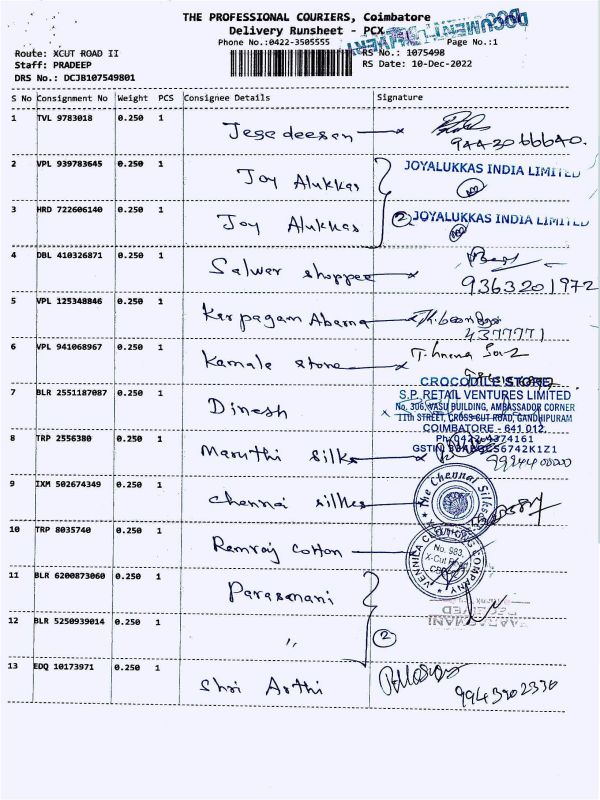 THE PROFESSIONAL COURIERS, Coimbatore
Delivery Runsheet - PCX
Phone No.:0422-3505555 Page No.:1
Route: XCUT ROAD II RS No.: 1075498
Staff: PRADEEP RS Date: 10-Dec-2022
DRS No.: DCJB107549801
S No Consignment No Weight PCS Consignee Details Signature
1 TVL 9783018 0.250 1 Jegadeesan
9442066640.
2 VPL 939783645 0.250 1 Joy Alukkas JOYALUKKAS INDIA LIMITED
3 HRD 722606140 0.250 1 Joy Alukkas 2 JOYALUKKAS INDIA LIMITED
4 DBL 410326871 0.250 1 Salwar shoppee
9363201972
5 VPL 125348846 0.250 1 Karpagam Abarna
4377771
6 VPL 941068967 0.250 1 Kamala store
CROCODILE STORE
S.P. RETAIL VENTURES LIMITED
7 BLR 2551187087 0.250 1 Dinesh No. 306, VASU BUILDING, AMBASSADOR CORNER
11th STREET, CROSS CUT ROAD, GANDHIPURAM
COIMBATORE - 641 012.
8 TRP 2556380 0.250 1 Maruthi silks Ph:0422-4374161
GSTIN
9 IXM 502674349 0.250 1 Chennai silkes The Chennai Silks
10 TRP 8035740 0.250 1 Ramraj Cotton VENNILA CLOTHING COMPANY
No. 983,
11 BLR 6200873060 0.250 1 Parasmani
RECEIVED
PARASMANI
12 BLR 5250939014 0.250 1 〃 2
13 EDQ 10173971 0.250 1 Shri Arthi
9943902330